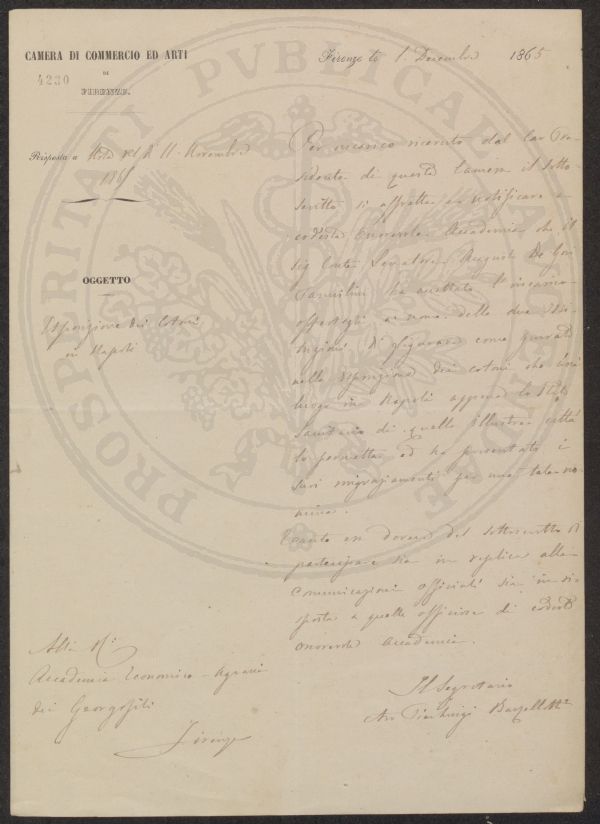 CAMERA DI COMMERCIO ED ARTI
DI
FIRENZE.
4230
Firenze lì 1 Decembre 1865
Risposta a Nota del dì 11 Novembre
1865
OGGETTO
Esposizione dei Cotoni
in Napoli
Per incarico ricevuto dal Cav Pre-
sidente di questa Camera il sotto
scritto si affretta a notificare a
codesta Onorevole Accademia che il
Sig Conte Senatore Augusto De Gori
Pannilini ha accettato l'incarico
offertogli a nome delle due Isti-
tuzioni di figurare come giurato
nella esposizione dei cotoni che avrà
luogo in Napoli appena lo stato
Sanitario di quella illustre città
lo permetta ed ha presentato i
suoi ringraziamenti per una tale no
mina.
Tanto in dovere del sottoscritto di
partecipare sia in replica alle
Comunicazioni officiali sia in ri-
sposta a quelle officiose di codesta
onorevole Accademia.
Il Segretario
Avv Pier Luigi Barzellotti
Alla R.
Accademia Economico-Agraria
dei Georgofili
Firenze
PROSPERITATI PUBLICAE AUGENDAE